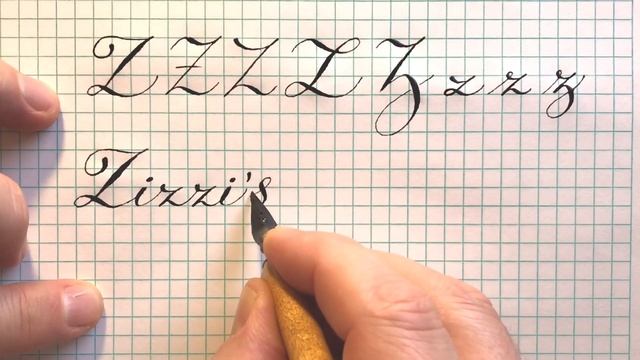 Z Z Z Z Z z z z
Zizzi's